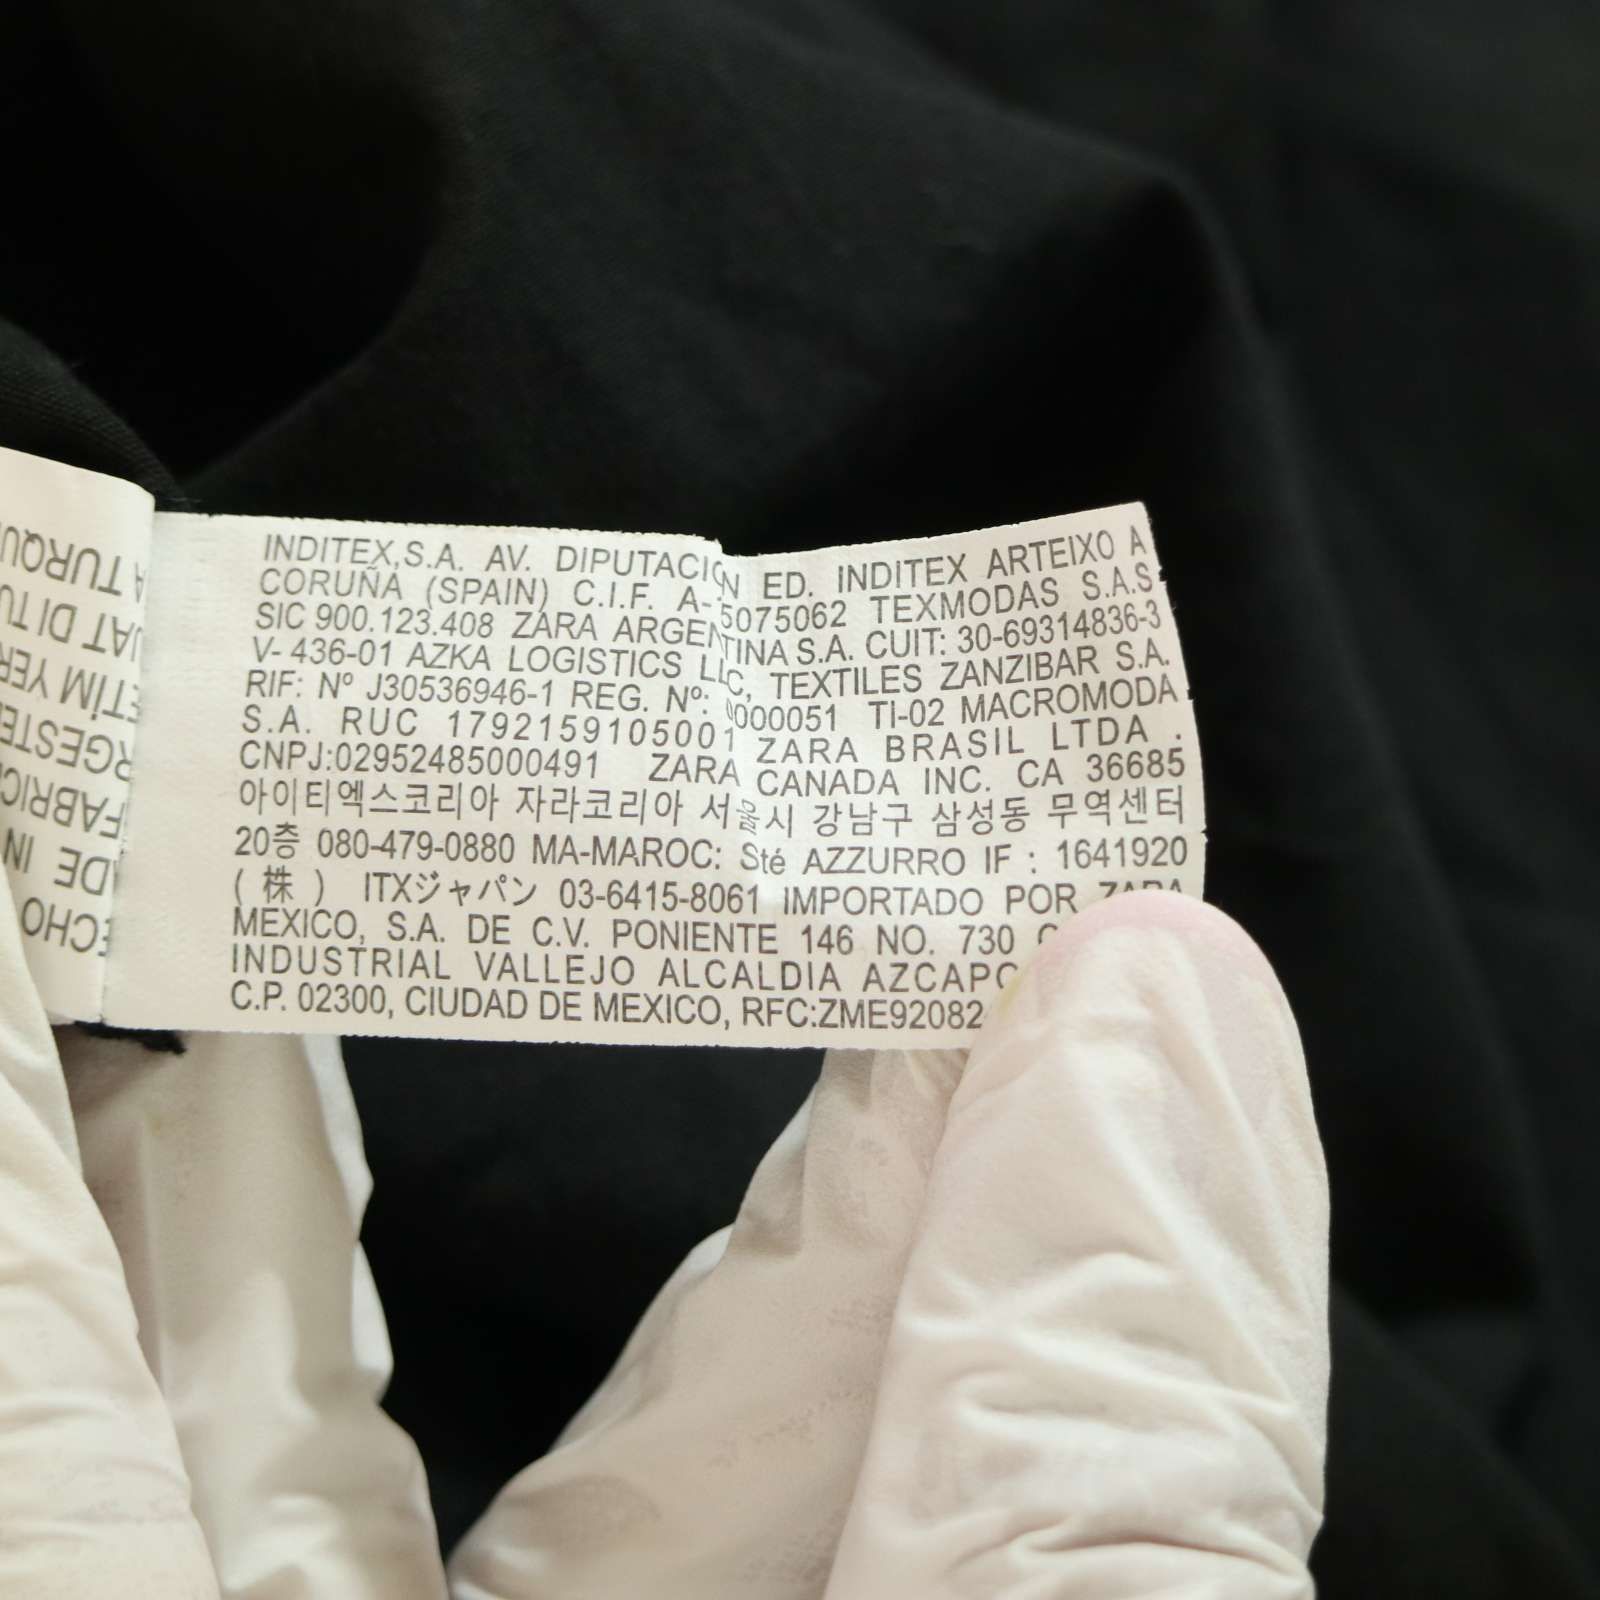 INDITEX,S.A. AV. DIPUTACION ED. INDITEX ARTEIXO A
CORUÑA (SPAIN) C.I.F. A-15075062 TEXMODAS S.A.S
SIC 900.123.408 ZARA ARGENTINA S.A. CUIT: 30-69314836-3
V- 436-01 AZKA LOGISTICS LLC, TEXTILES ZANZIBAR S.A.
RIF: Nº J30536946-1 REG. Nº: 0000051 TI-02 MACROMODA
S.A. RUC 1792159105001 ZARA BRASIL LTDA .
CNPJ:02952485000491 ZARA CANADA INC. CA 36685
아이티엑스코리아 자라코리아 서울시 강남구 삼성동 무역센터
20층 080-479-0880 MA-MAROC: Sté AZZURRO IF : 1641920
(株) ITXジャパン 03-6415-8061 IMPORTADO POR ZARA
MEXICO, S.A. DE C.V. PONIENTE 146 NO. 730
INDUSTRIAL VALLEJO ALCALDIA AZCAPO
C.P. 02300, CIUDAD DE MEXICO, RFC:ZME92082
ECHO
ADE IN
FABRIC
RGESTE
ETİM YER
UAT DI TU
A TURQU